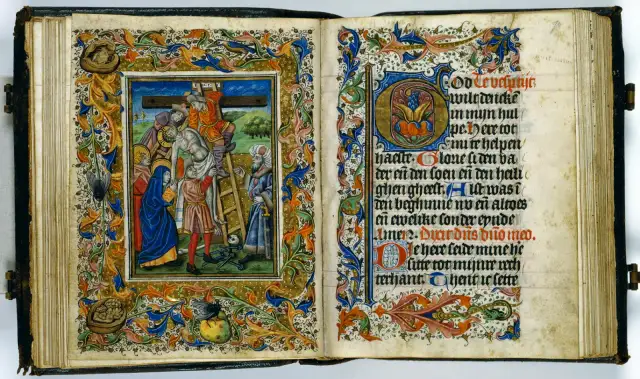 God Te vesptijt
wilt dencke
in mijn hul
pe. Here tot
mi te helpen
haeste. Glorie si den va
der eñ den soen eñ den heili
ghen gheest. Als t was ī
den beghinne nv eñ altoes
eñ ewelike sonder eynde
Amen. Dixit dn̄s dn̄o meo.
Die here seide mine he
sitte tot mijnre rech
terhant